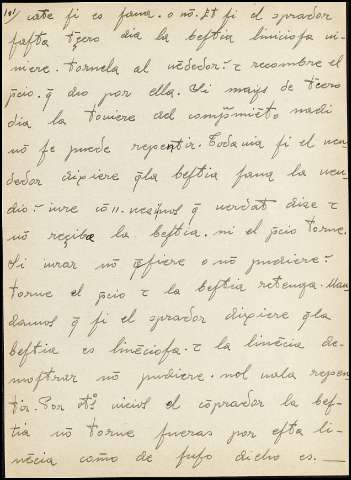 101) cate ſi es ſana. o nō. Et ſi el cprador
faſta tͨero dia la beſtia lunēcioſa vi-
niere. tornela al vēdedor. τ recombre el
pͨcio. q̄ dio por ella. Si mays de tͨero
dia la touiere del comp̄miēto nadi
nō ſe puede repentir. Todauia ſi el ven
dedor dixiere q̄la beſtia ſana la ven-
dio. iure cō .II. veȥinos q̄ verdat diȥe τ
nō reçiba la beſtia. ni el pͨcio torne.
Si iurar nō q̄ſiere o nō pudiere.
torne el pͨcio τ la beſtia retenga. Man
damos q̄ ſi el cprador dixiere q̄la
beſtia es lunēcioſa. τ la lunēcia de-
moſtrar nō pudiere. nol uala repen
tir. Por otͦ vicio el cōprador la beſ-
tia nō torne fueras por eſta lu-
nēcia como de ſuſo dicho es.